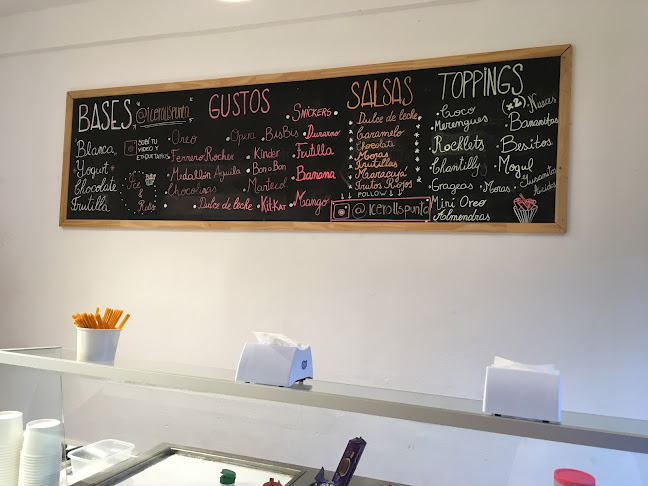 BASES
@icerollspunto
Blanca
Yogurt
Chocolate
Frutilla
SUBÍ TU
VIDEO Y
ETIQUETANOS
Ice
Rolls
GUSTOS
Oreo
Ferrero Rocher
Medallón Aguila
Chocolinas
Dulce de leche
Opera
Kinder
Bon o Bon
Mantecol
KitKat
BisBis
SNICKERS
Durazno
Frutilla
Banana
Mango
SALSAS
Dulce de leche
Caramelo
Chocolate
Moras
Frutillas
Maracuyá
Frutos Rojos
FOLLOW
@icerollspunto
TOPPINGS
Coco
Merengues
Rocklets
Chantilly
Grageas
Moras
Mini Oreo
Almendras
(x2)
Nueces
Bananitas
Besitos
Mogul
Gusanitos
Ácidos